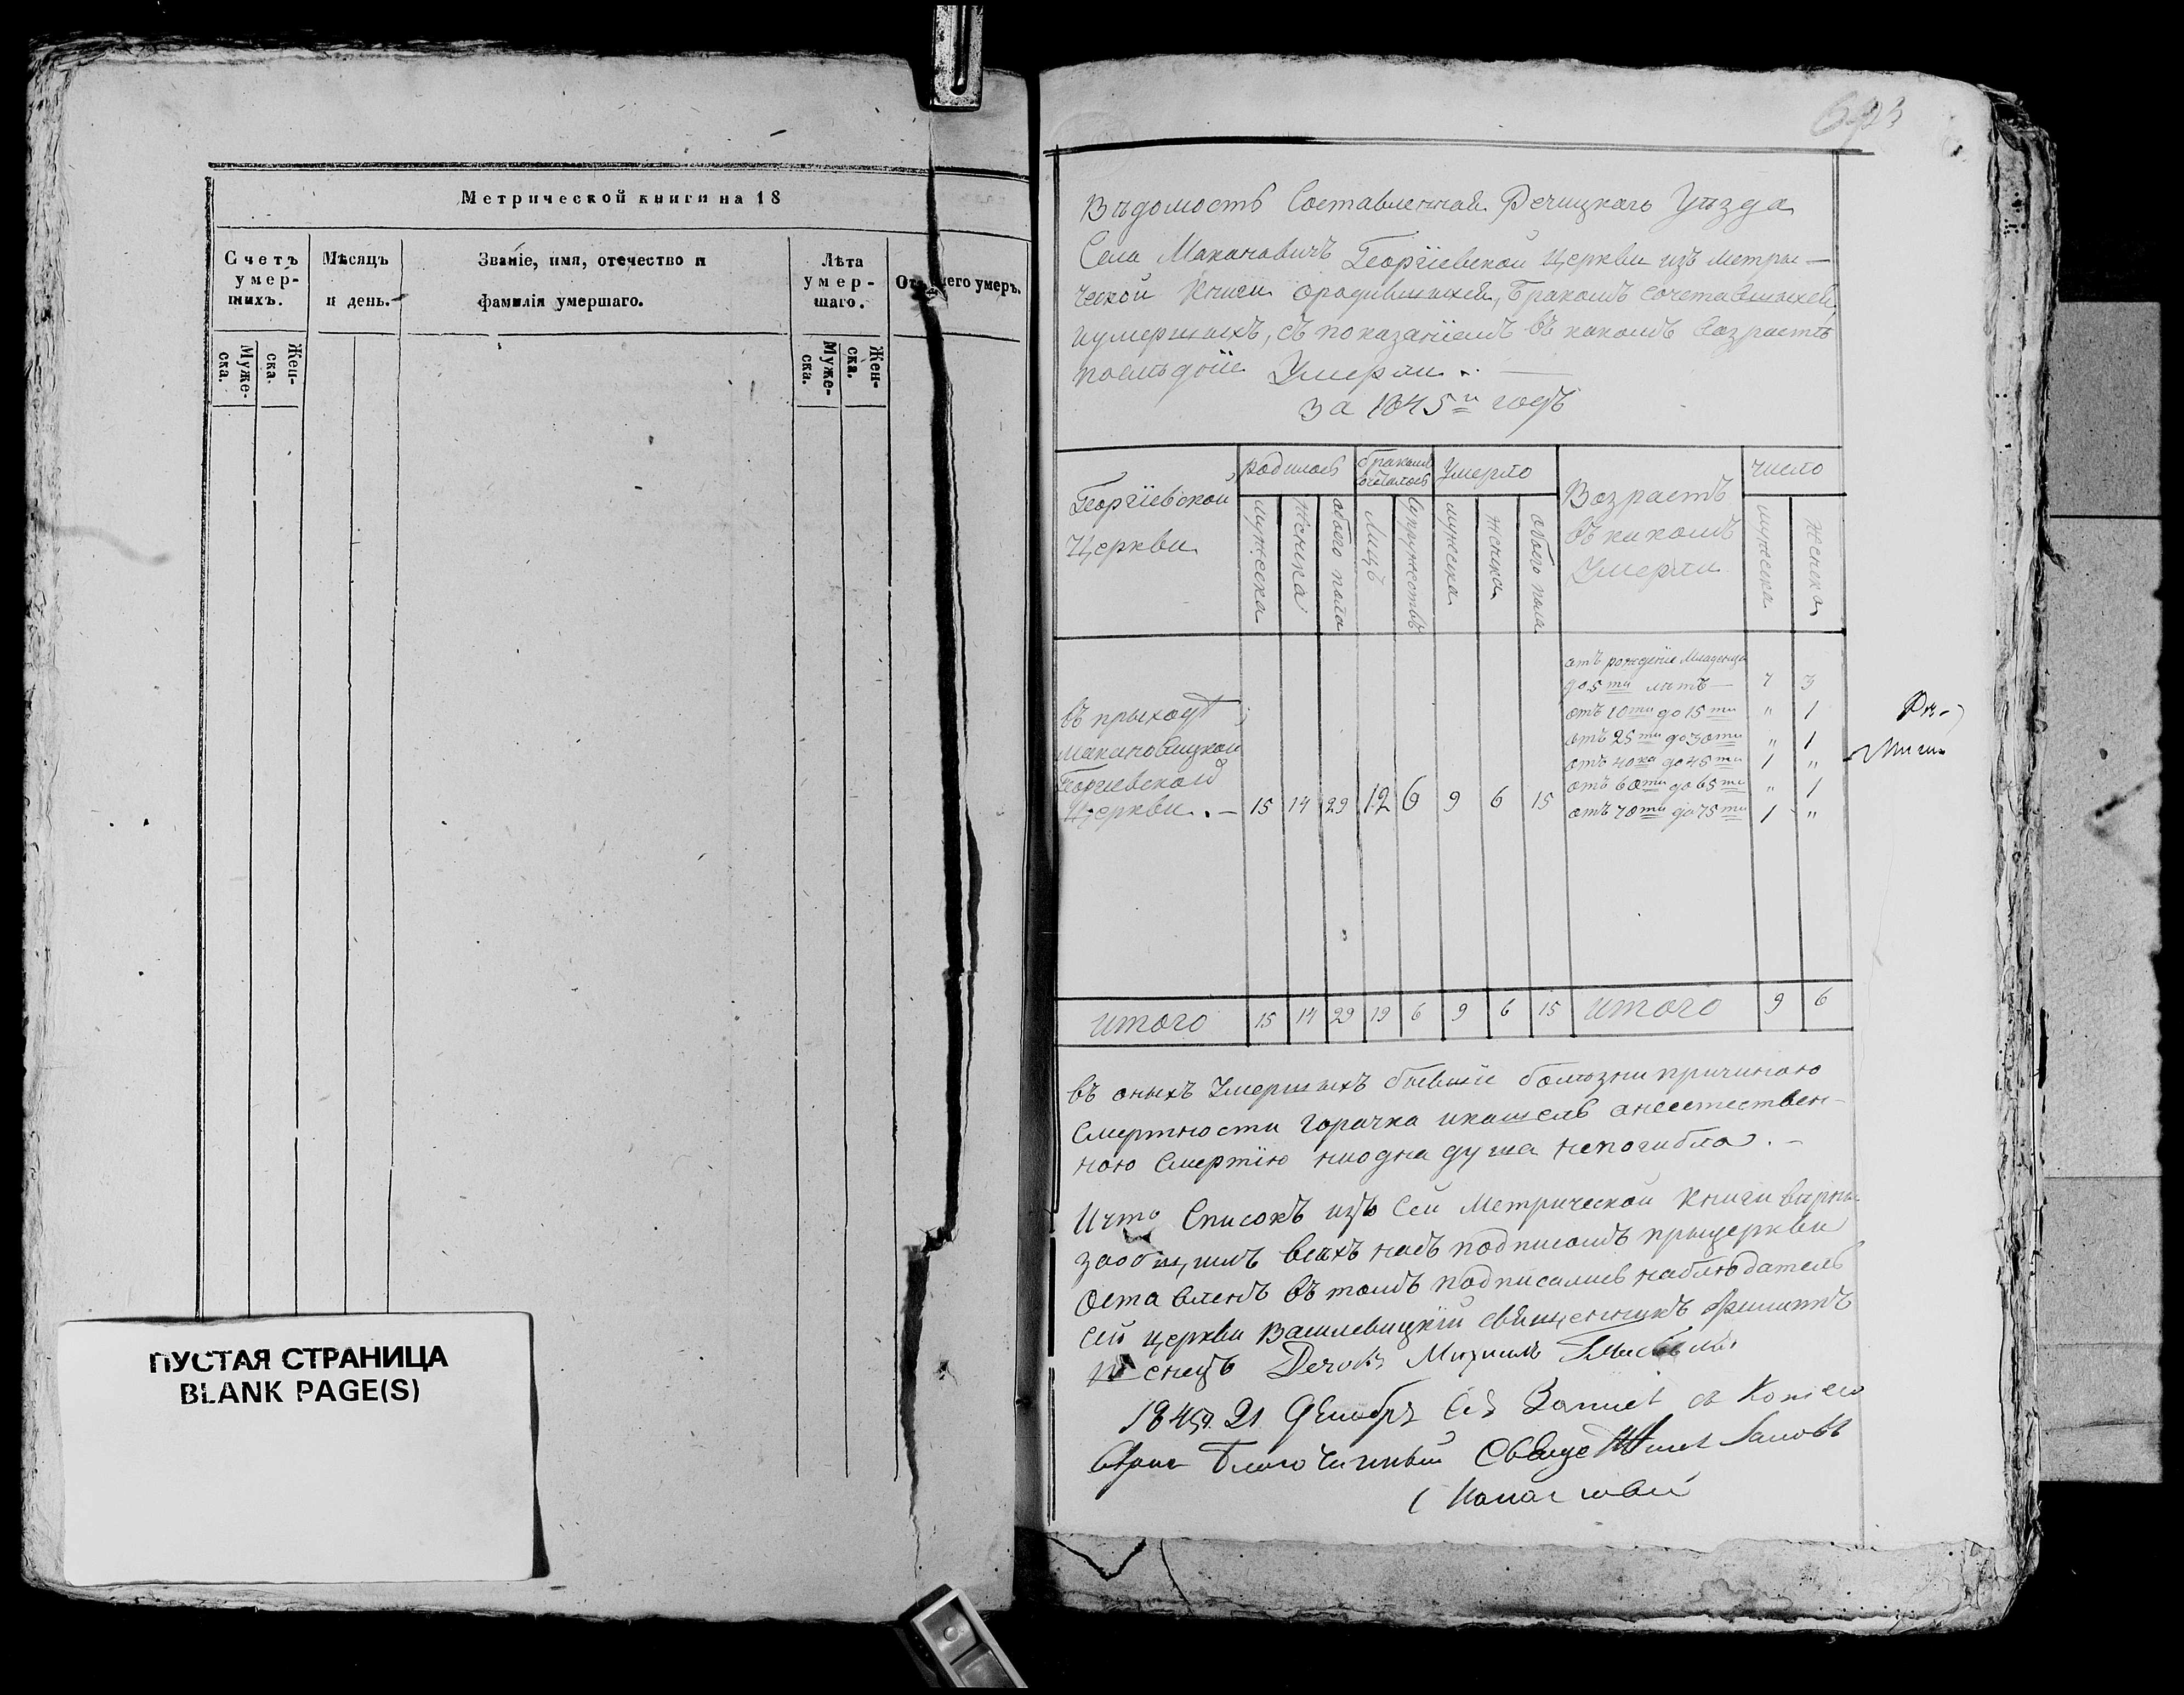 Метрической книги на 18
Счетъ умер-шихъ.
Мѣсяцъ и день.
Званіе, имя, отечество и фамилія умершаго.
Лѣта умер-шаго.
Отъ чего умеръ.
Муже-ска.
Жен-ска.
Муже-ска.
Жен-ска.
ПУСТАЯ СТРАНИЦА
BLANK PAGE(S)
Вѣдомость Составленная Речицкаго Уѣзда
Села Макановичъ Георгіевской Церкви изъ метри-
ческой Книги ородившихся, бракомъ сочетавшихся
иумершихъ, съ показаніемъ въ какомъ возрастѣ
послѣдніе Умерли.
За 1845й годъ
Георгіевской
Церкви
родилось
бракомъ
сочеталось
Умерло
Возрастъ
въ какомъ
Умерли
число
мужеска
женска
обоего пола
Лицъ
Супружествъ
мужеска
женска
обоего пола
мужеска
женска
въ прыходѣ
Макановицкой
Георгіевской
Церкви. — 15 14 29 12 6 9 6 15
отъ рожденіе Младенца
до 5ти лѣтъ — 7 3
отъ 10ти до 15ти " 1
отъ 25ти до 30ти " 1
отъ 40ка до 45ти 1 "
отъ 60ти до 65ти " 1
отъ 70ти до 75ти 1 "
итого 15 14 29 12 6 9 6 15 итого 9 6
въ оныхъ Умершихъ бывшіе болѣзни причиною
Смертности горачка икашель анеестествен-
ною Смертію ниодна душа непогибла. —
Ичто Списокъ изъ Сей Метрической Книги вѣрны
заобщимъ всѣхъ насъ подписомъ прыцеркви
Оставленъ въ томъ подписались наблюдатель
сей церкви Василевицкій священникъ
Дечокъ Михаилъ
1845 21 Декабр
Благочинный